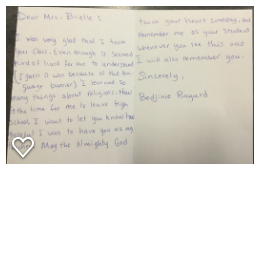 Dear Mrs. Brielle :
I was very glad that I took
your class. Even though it seemed
kind of hard for me to understand
(I guess it was because of that the
barrier) I learned so
many things about religions. Now
the time for me to leave high
school I want to let you know how
I was to have you as my
May the Almighty God
touch your heart someday, and
remember me as your student
wherever you see this and
I will also remember you.
Sincerely,
Bedjine